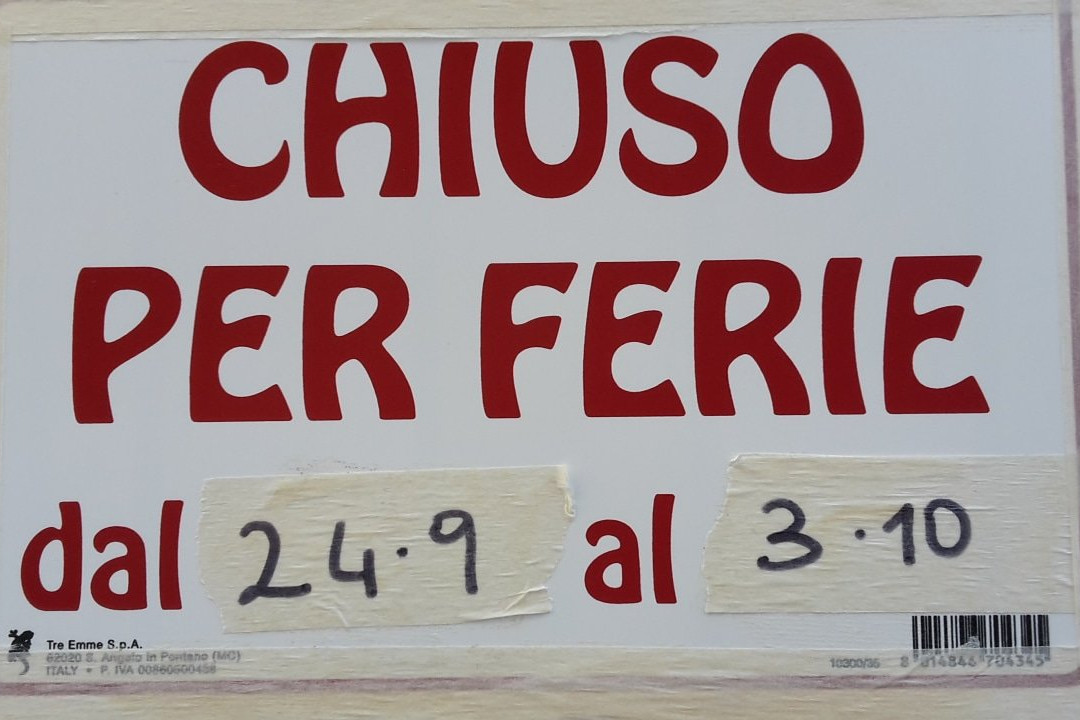 CHIUSO
PER FERIE
dal 24.9 al 3.10
Tre Emme S.p.A.
62020 S. Angelo in Pontano (MC)
ITALY • P. IVA 00860500438
10300/35
8 014846 704345